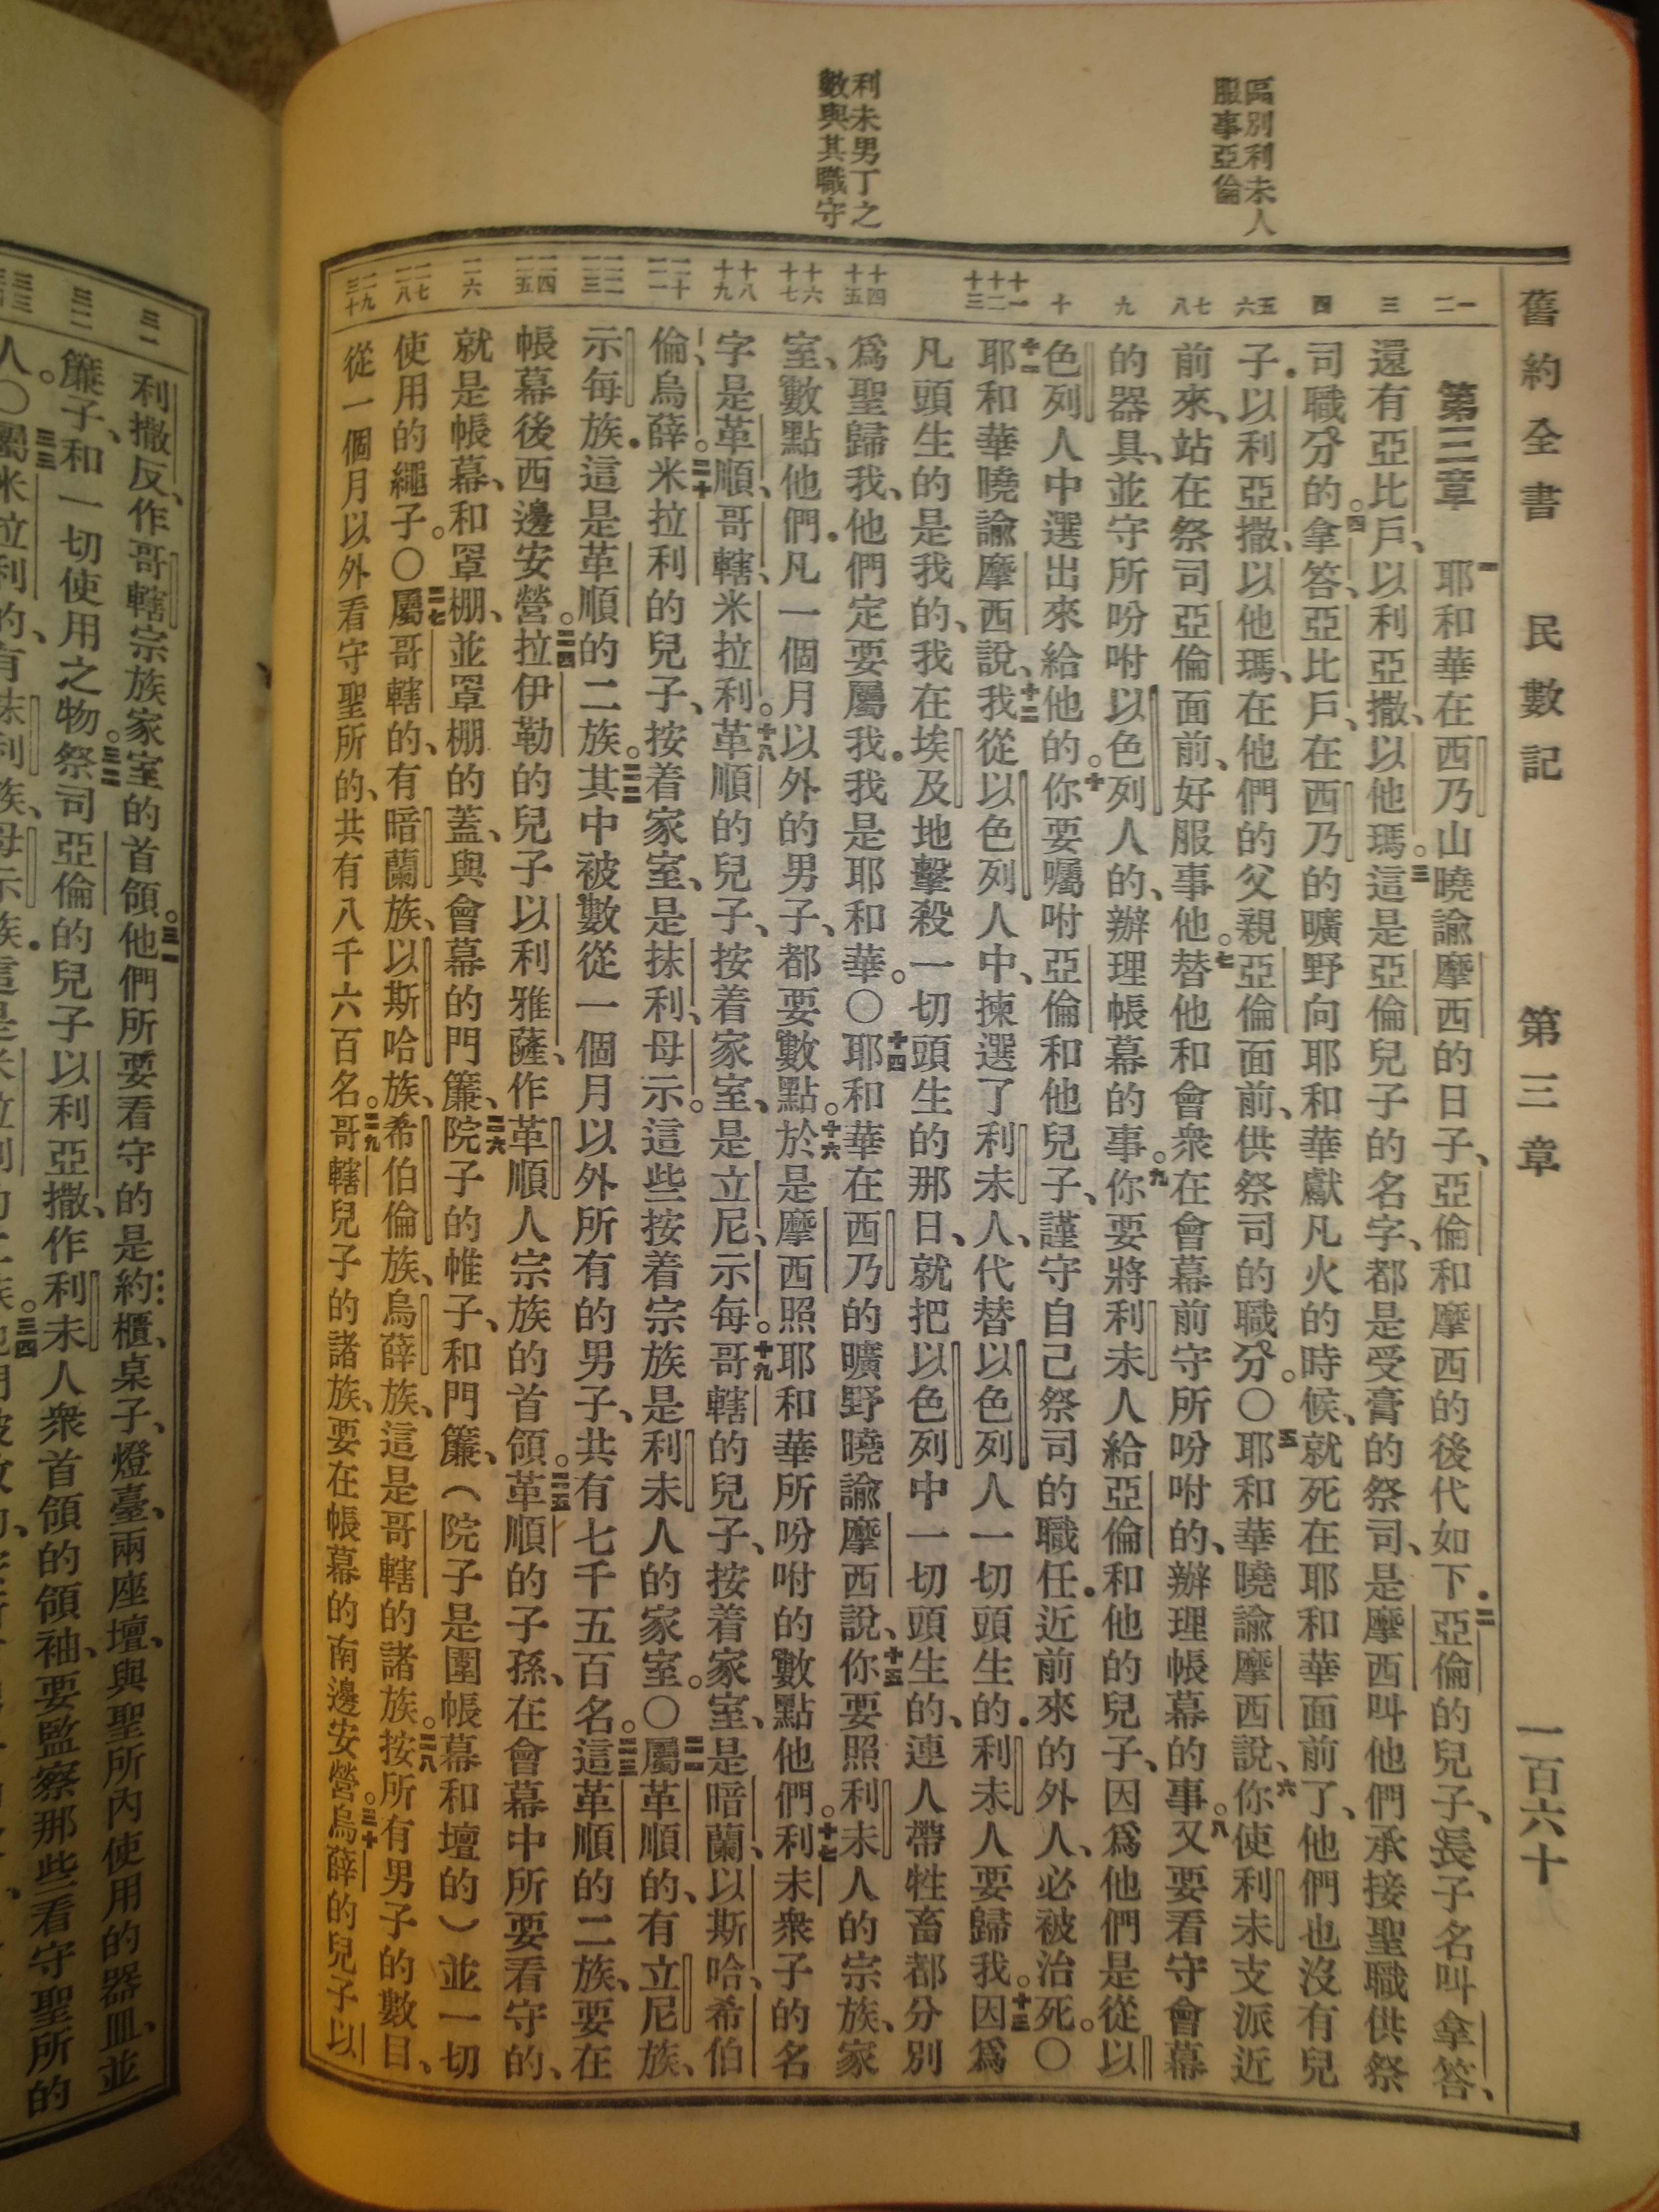 舊約全書　民數記　第三章　一百六十
區別利未人
服事亞倫
利未男丁之
數與其職守
一二
三
四
五六
七八
九
十
十一十二十三
十四十五
十六十七
十八十九
二十二一
二二二三
二四二五
二六
二七二八
二九三十
第三章　一耶和華在西乃山曉諭摩西的日子、亞倫和摩西的後代如下．二亞倫的兒子、長子名叫拿答、
還有亞比戶、以利亞撒、以他瑪。三這是亞倫兒子的名字、都是受膏的祭司、是摩西叫他們承接聖職供祭
司職分的。四拿答、亞比戶、在西乃的曠野向耶和華獻凡火的時候、就死在耶和華面前了、他們也沒有兒
子．以利亞撒、以他瑪、在他們的父親亞倫面前、供祭司的職分。〇五耶和華曉諭摩西說、六你使利未支派近
前來、站在祭司亞倫面前、好服事他。七替他和會衆在會幕前守所吩咐的、辦理帳幕的事。八又要看守會幕
的器具、並守所吩咐以色列人的、辦理帳幕的事。九你要將利未人給亞倫和他的兒子、因爲他們是從以
色列人中選出來給他的。十你要囑咐亞倫和他兒子、謹守自己祭司的職任．近前來的外人、必被治死。〇
十一耶和華曉諭摩西說、十二我從以色列人中、揀選了利未人、代替以色列人一切頭生的．利未人要歸我。十三因爲
凡頭生的是我的、我在埃及地擊殺一切頭生的那日、就把以色列中一切頭生的、連人帶牲畜都分別
爲聖歸我、他們定要屬我．我是耶和華。〇十四耶和華在西乃的曠野曉諭摩西說、十五你要照利未人的宗族、家
室、數點他們．凡一個月以外的男子、都要數點。十六於是摩西照耶和華所吩咐的數點他們。十七利未衆子的名
字是革順、哥轄、米拉利。十八革順的兒子、按着家室、是立尼、示每。十九哥轄的兒子、按着家室、是暗蘭、以斯哈、希伯
倫、烏薛。二十米拉利的兒子、按着家室、是抹利、母示。這些按着宗族是利未人的家室。〇二一屬革順的、有立尼族、
示每族．這是革順的二族。二二其中被數從一個月以外所有的男子、共有七千五百名。二三這革順的二族、要在
帳幕後西邊安營。二四拉伊勒的兒子以利雅薩、作革順人宗族的首領。二五革順的子孫、在會幕中所要看守的、
就是帳幕、和罩棚、並罩棚的蓋、與會幕的門簾、二六院子的帷子、和門簾、（院子是圍帳幕和壇的）並一切
使用的繩子。〇二七屬哥轄的、有暗蘭族、以斯哈族、希伯倫族、烏薛族、這是哥轄的諸族。二八按所有男子的數目、
從一個月以外看守聖所的、共有八千六百名。二九哥轄兒子的諸族、要在帳幕的南邊安營。三十烏薛的兒子以
三一
三二
利撒反、作哥轄宗族家室的首領。三一他們所要看守的是約櫃、桌子、燈臺、兩座壇、與聖所內使用的器皿、並
簾子、和一切使用之物。三二祭司亞倫的兒子以利亞撒、作利未人衆首領的領袖、要監察那些看守聖所的
人。〇三三屬米拉利的、有抹利族、母示族．這是米拉利的二族。三四